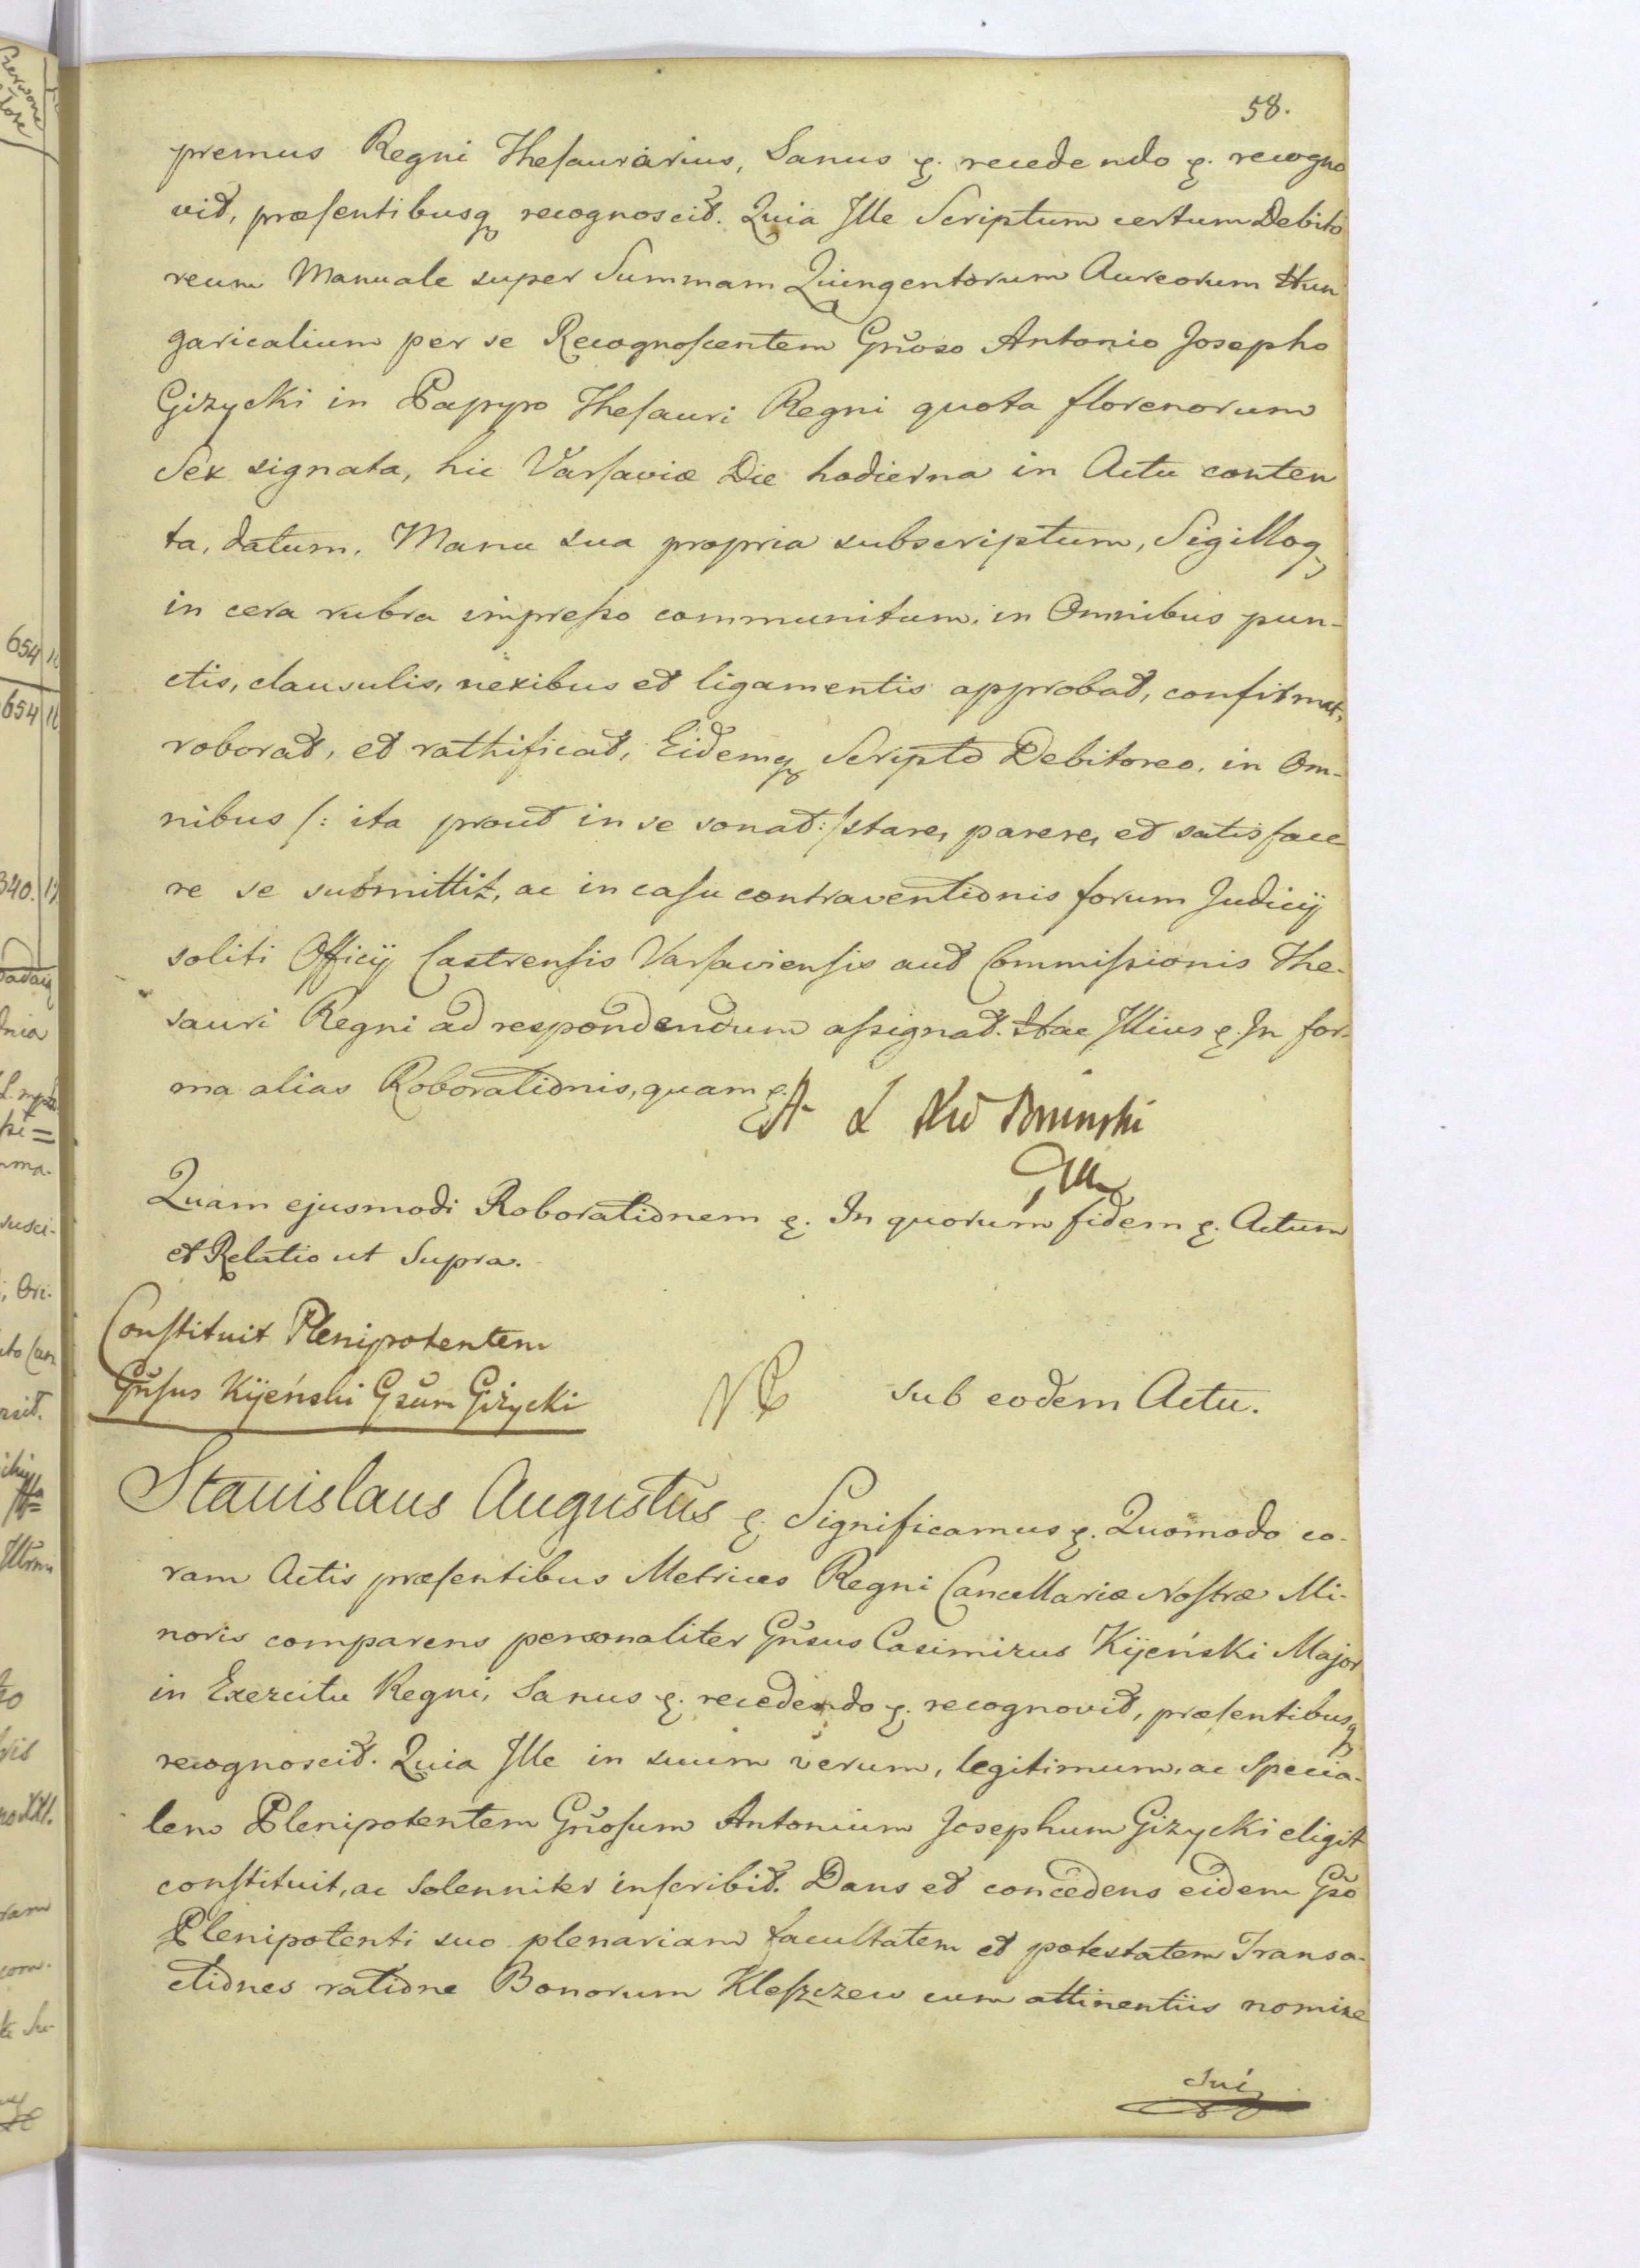 58.
premus Regni Thesaurarius, Sanus ꝛ. recedendo ꝛ. recogno
vit, præsentibusq recognoscit. Quia Ille Scriptum certum Debito
reum Manuale super Summam Quingentorum Aureorum Hun
garicalium per se Recognoscentem Gñoso Antonio Josepho
Gizycki in Papyro Thesauri Regni quota florenorum
Sex signata, hic Varsaviæ Die hodierna in Actu conten
ta, datum, Manu sua propria subscriptum, Sigilloq
in cera rubra impresso communitum, in Omnibus pun-
ctis, clausulis, nexibus et ligamentis approbat, confirmat,
roborat, et rathificat, Eidemq Scripto Debitoreo, in Om-
nibus /: ita prout in se sonat :/ stare, parere, et satisface
re se submittit, ac in casu contraventionis forum Judicij
soliti Officij Castrensis Varsaviensis aut Commissionis The-
sauri Regni ad respondendum assignat. Hac Illius ꝛ. In for-
ma alias Roborationis, quam ꝛ.
Quam ejusmodi Roborationem ꝛ. In quorum fidem ꝛ. Actum
et Relatio ut Supra.
Constituit Plenipotentem
Gñsus Kijeński Gsum Giżycki
sub eodem Actu.
Stanislaus Augustus ꝛ. Significamus ꝛ. Quomodo co-
ram Actis præsentibus Metrices Regni Cancellariæ Nostræ Mi-
noris comparens personaliter Gñsus Casimirus Kijeński Major
in Exercitu Regni, Sanus ꝛ. recedendo ꝛ. recognovit, præsentibusq
recognoscit. Quia Ille in suum verum, legitimum, ac Specia-
lem Plenipotentem Gñosum Antonium Josephum Gizycki eligit
constituit, ac Solenniter inscribit. Dans et concedens eidem Gso
Plenipotenti suo plenariam facultatem et potestatem Transa-
ctiones ratione Bonorum Kleszczew cum attinentiis nomine
sui